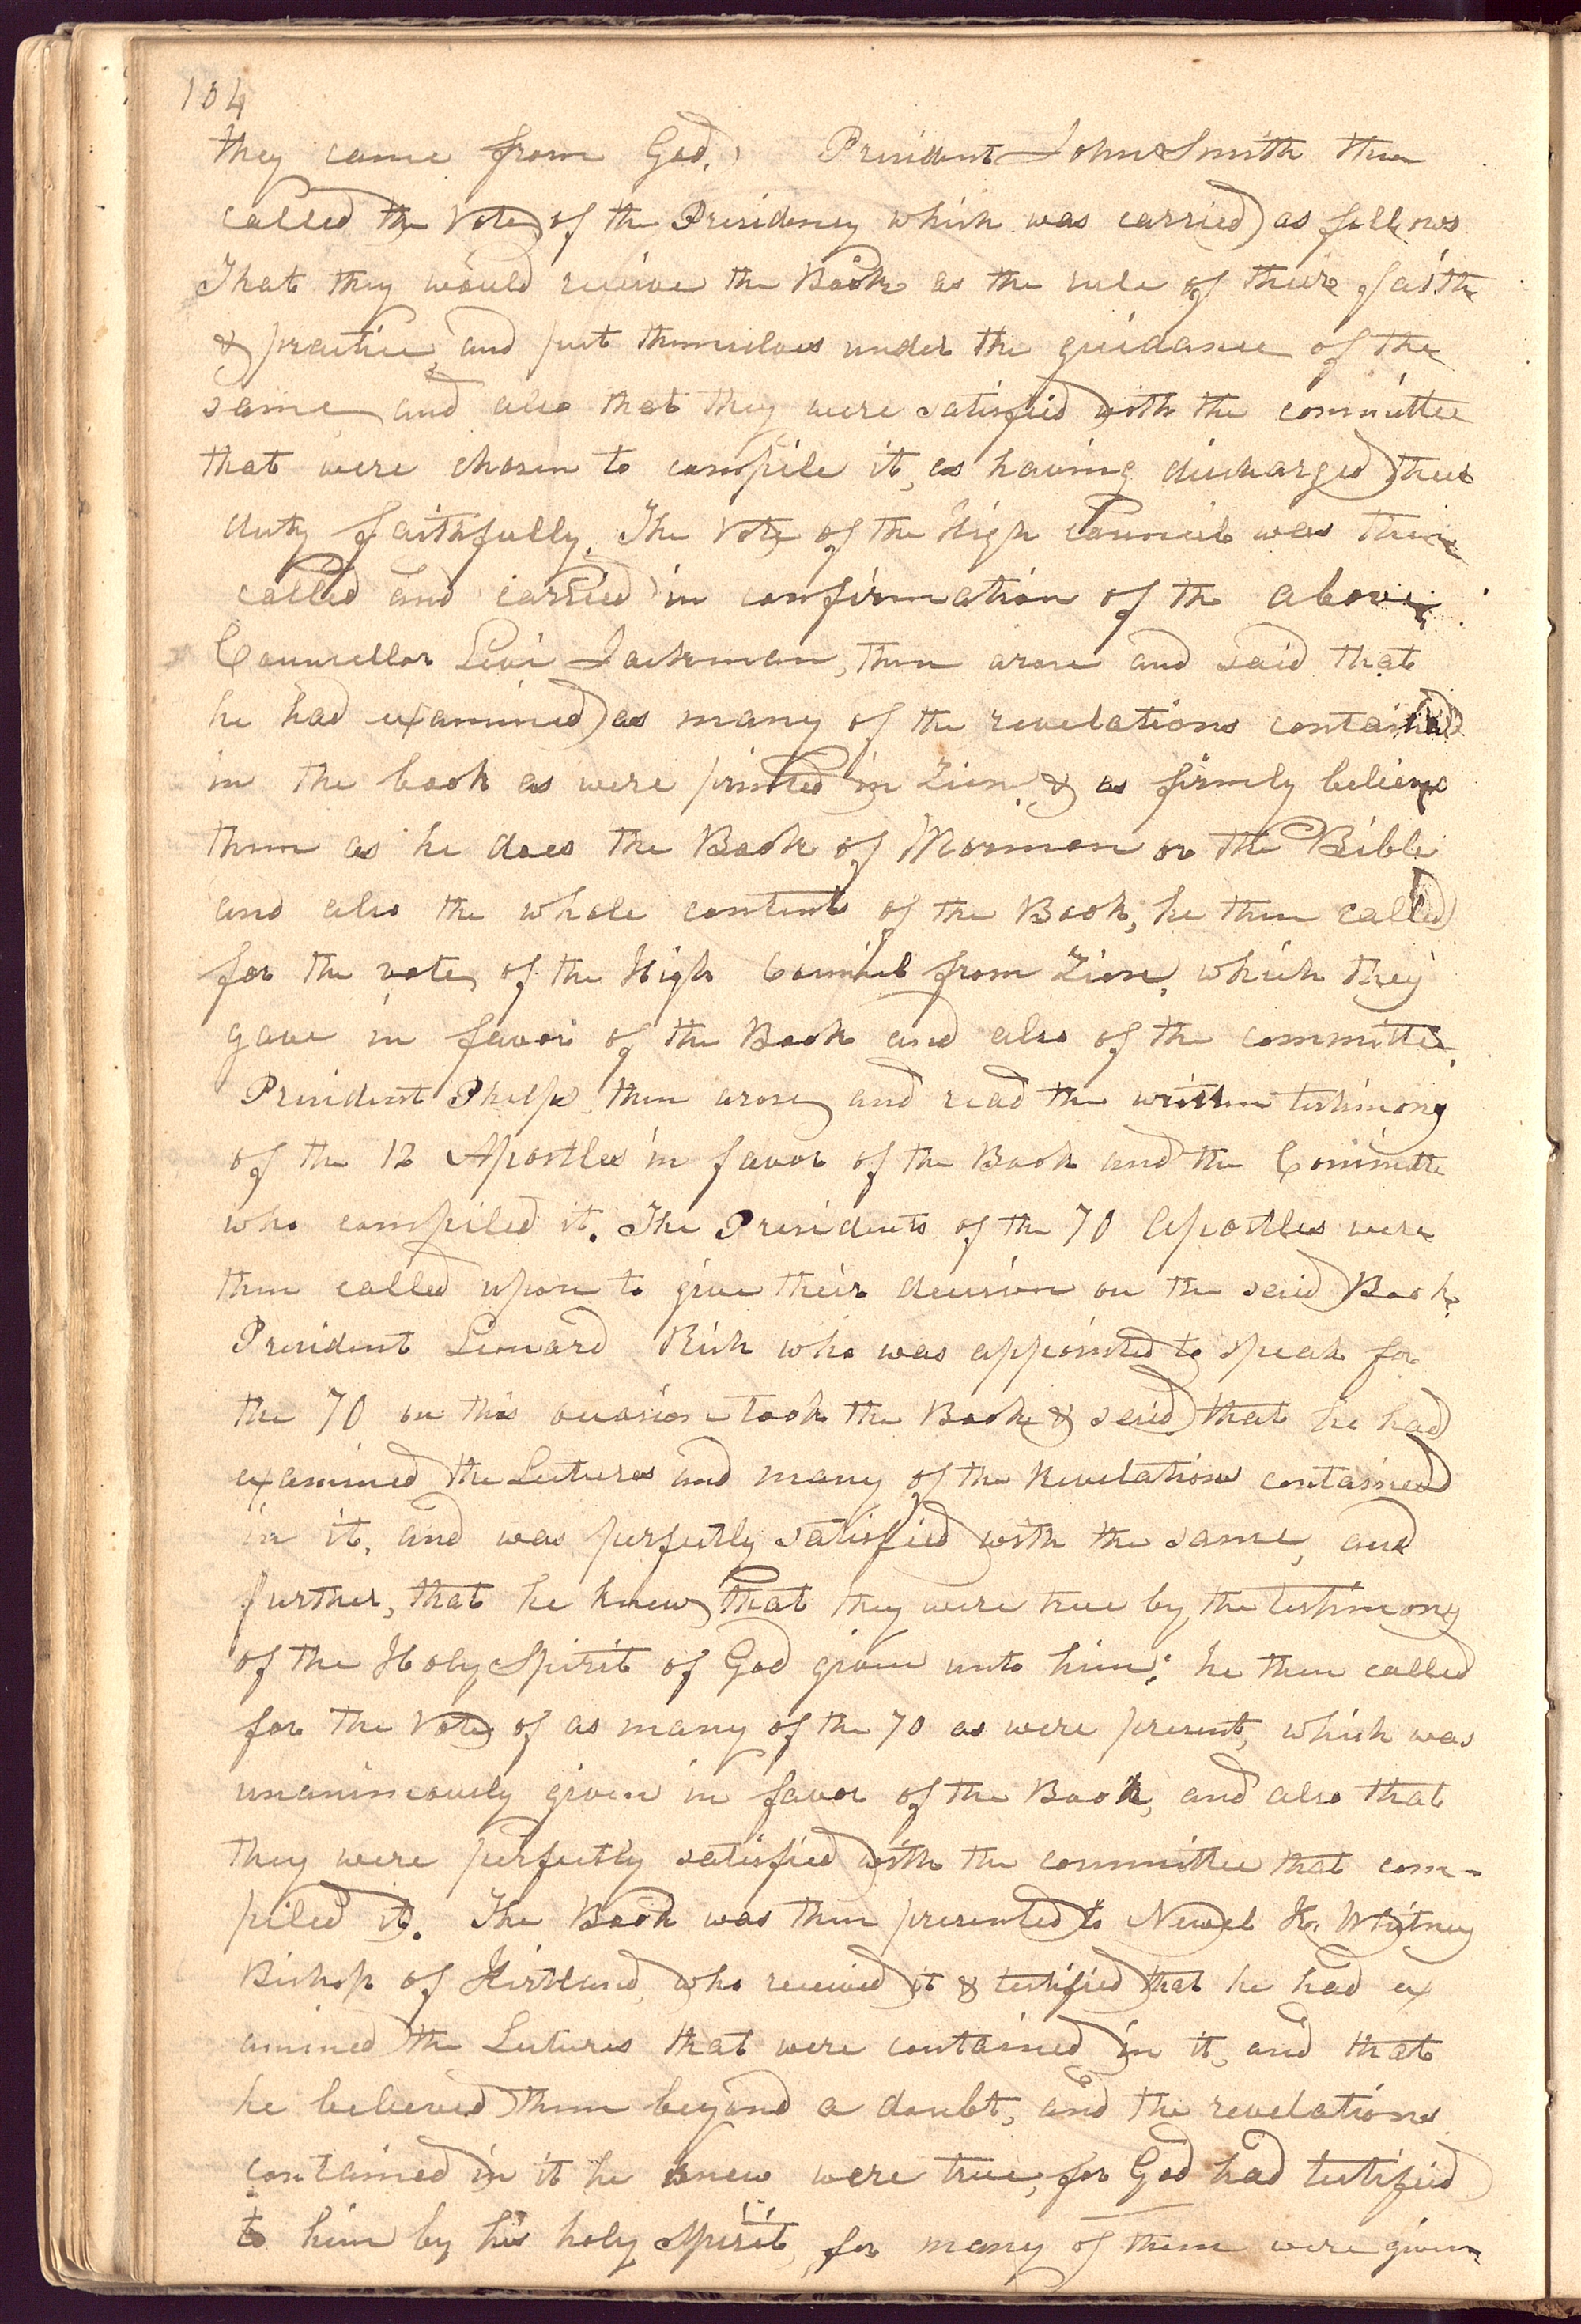 104
they came from God. President John Smith then
called the Vote of the Presidency which was carried as follows
That they would receive the Book as the rule of their faith
& practice, and put themselves under the guidance of the
same and also that they were satisfied with the committee
that were chosen to compile it, as having discharged their
duty faithfully. The Vote of the High Council was then
called and carried in confirmation of the above.
Councellor Levi Jackman, then arose and said that
he had examined as many of the revelations contained
in the book as were printed in Zion, & as firmly believe
them as he does the Book of Mormon or the Bible
and also the whole content of the Book, he then called
for the vote of the High Council from Zion, which they
gave in favor of the Book and also of the committee.
President Phelps, then arose and read the written testimony
of the 12 Apostles in favor of the Book and the Committe
who compiled it. The Presidents of the 70 Apostles were
then called upon to give their decision on the said Book,
President Leonard Rich who was appointed to speak for
the 70 on this occasion took the Book & said that he had
examined the Lectures and many of the Revelations contained
in it, and was perfectly satisfied with the same, and
further, that he knew that they were true by the testimony
of the Holy Spirit of God given unto him: he then called
for the Vote of as many of the 70 as were present, which was
unanimously given in favor of the Book, and also that
they were perfectly satisfied with the committee that com-
piled it. The Book was then presented to Newel K. Whitney
Bishop of Kirtland, who received it & testified that he had ex
amined the Lectures that were contained in it, and that
he believed them beyond a doubt, and the revelations
contained in it he knew were true, for God had testified
to him by his holy Spirit, for many of them were given